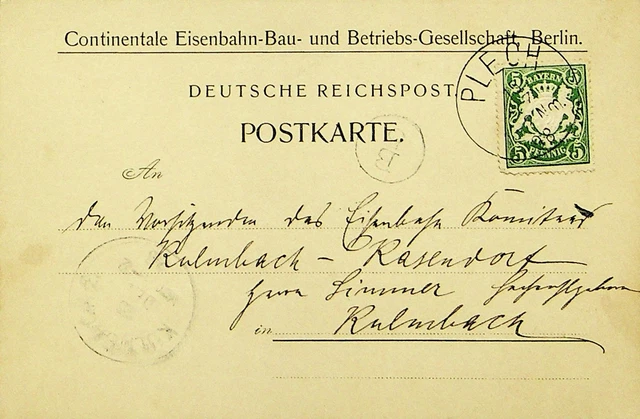 Continentale Eisenbahn-Bau- und Betriebs-Gesellschaft, Berlin.
DEUTSCHE REICHSPOST
POSTKARTE.
PLECH
5 BAYERN 5
5 PFENNIG 5
B
An
den Vorsitzenden des Eisenbahn Komitees
Kulmbach - Kasendorf
Herrn Limmer
in Kulmbach